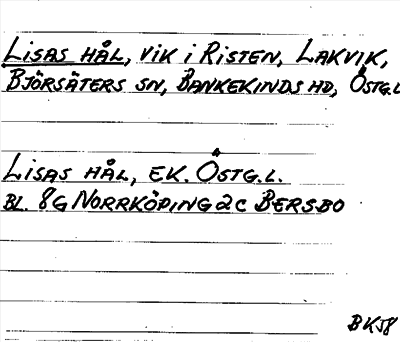 LISAS HÅL, VIK I RISTEN, LAKVIK,
BJÖRSÄTERS SN, BANKEKINDS HD, ÖSTG.L
LISAS HÅL, EK. ÖSTG.L.
BL. 8G NORRKÖPING 2C BERSBO
BKJ8